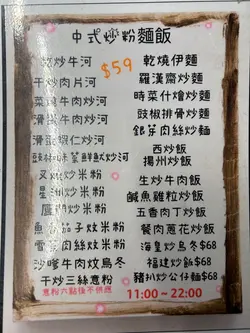 中式炒粉麵飯
$59
乾炒牛河
干炒肉片河
菜遠牛肉炒河
滑牛肉炒河
滑蛋蝦仁炒河
豉椒味菜鮮魷炒河
叉燒炒米粉
星洲炒米粉
廈門炒米粉
魚香茄子炆米粉
雪菜肉絲炆米粉
沙嗲牛肉炆烏冬
干炒三絲意粉
意粉六點後不供應
乾燒伊麵
羅漢齋炒麵
時菜什燴炒麵
豉椒排骨炒麵
銀芽肉絲炒麵
西炒飯
揚州炒飯
生炒牛肉飯
鹹魚雞粒炒飯
五香肉丁炒飯
餐肉蔥花炒飯
海皇炒烏冬$68
福建炒飯$68
豬扒炒公仔麵$68
11:00~22:00